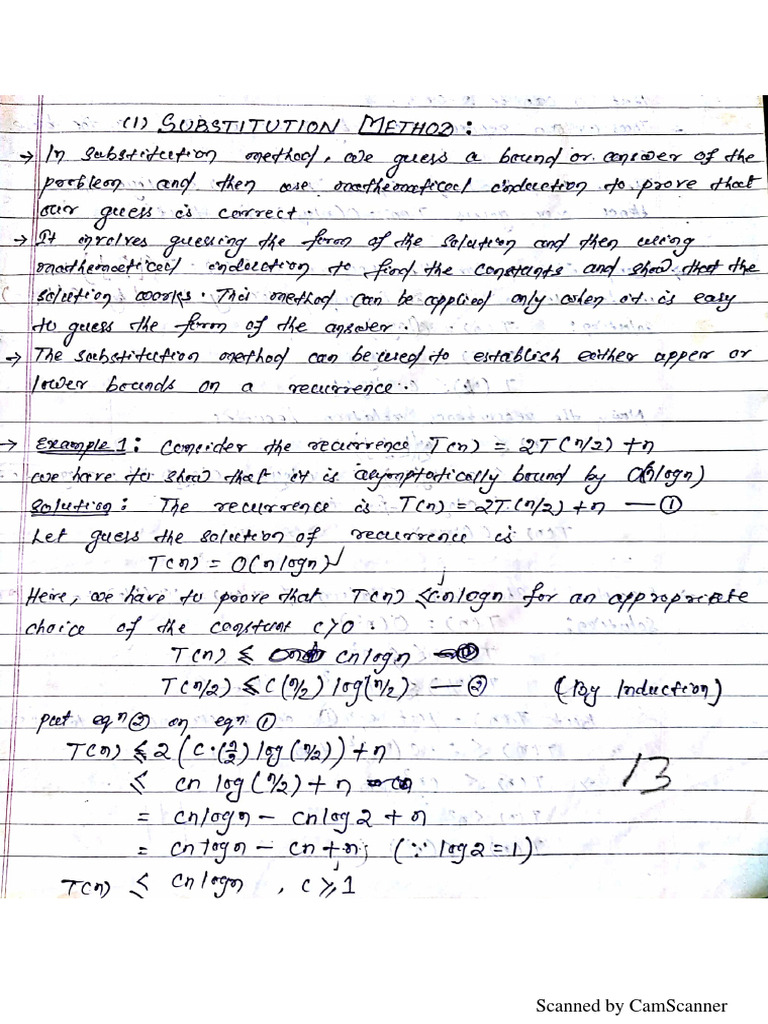 (1) SUBSTITUTION METHOD:
→ In substitution method, we guess a bound or answer of the
problem and then use mathematical induction to prove that
our guess is correct.
→ It involves guessing the form of the solution and then using
mathematical induction to find the constants and show that the
solution works. This method can be applied only when it is easy
to guess the form of the answer.
→ The substitution method can be used to establish either upper or
lower bounds on a recurrence.
→ Example 1: Consider the recurrence T(n) = 2T(n/2) + n
we have to show that it is asymptotically bound by O(nlogn)
Solution: The recurrence is T(n) = 2T(n/2) + n — ①
Let guess the solution of recurrence is
T(n) = O(nlogn)
Here, we have to prove that T(n) ≤ cnlogn for an appropriate
choice of the constant c>0.
T(n) ≤ cnlogn
T(n/2) ≤ c(n/2) log(n/2) — ② (By Induction)
put eqn ② on eqn ①
T(n) ≤ 2(c·(n/2) log(n/2)) + n
≤ cn log(n/2) + n
13
= cnlogn - cnlog2 + n
= cnlogn - cn + n; (∵ log2 = 1)
T(n) ≤ cnlogn, c ≥ 1
Scanned by CamScanner